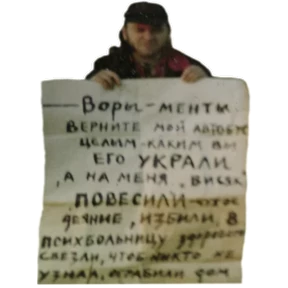 — Воры - менты
верните мой автобус
целым - каким вы
его украли
, а на меня „ висяк"
повесили
деяние, избили, в
психбольницу здорового
свезли, чтоб никто не
узнал, ограбили дом